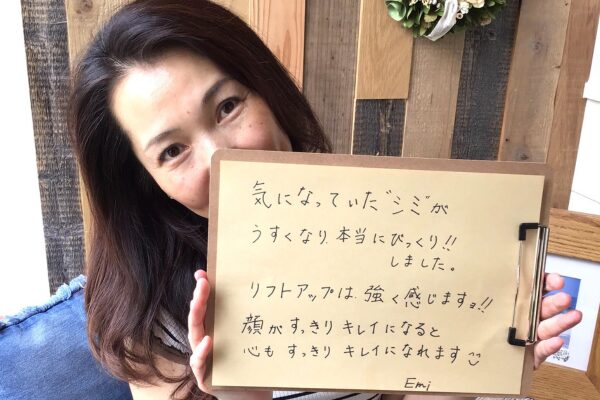 気になっていた"シミ"が
うすくなり、本当にびっくり!!
しました。
リフトアップは、強く感じますョ!!
顔がすっきりキレイになると
心もすっきりキレイになれます
Emi